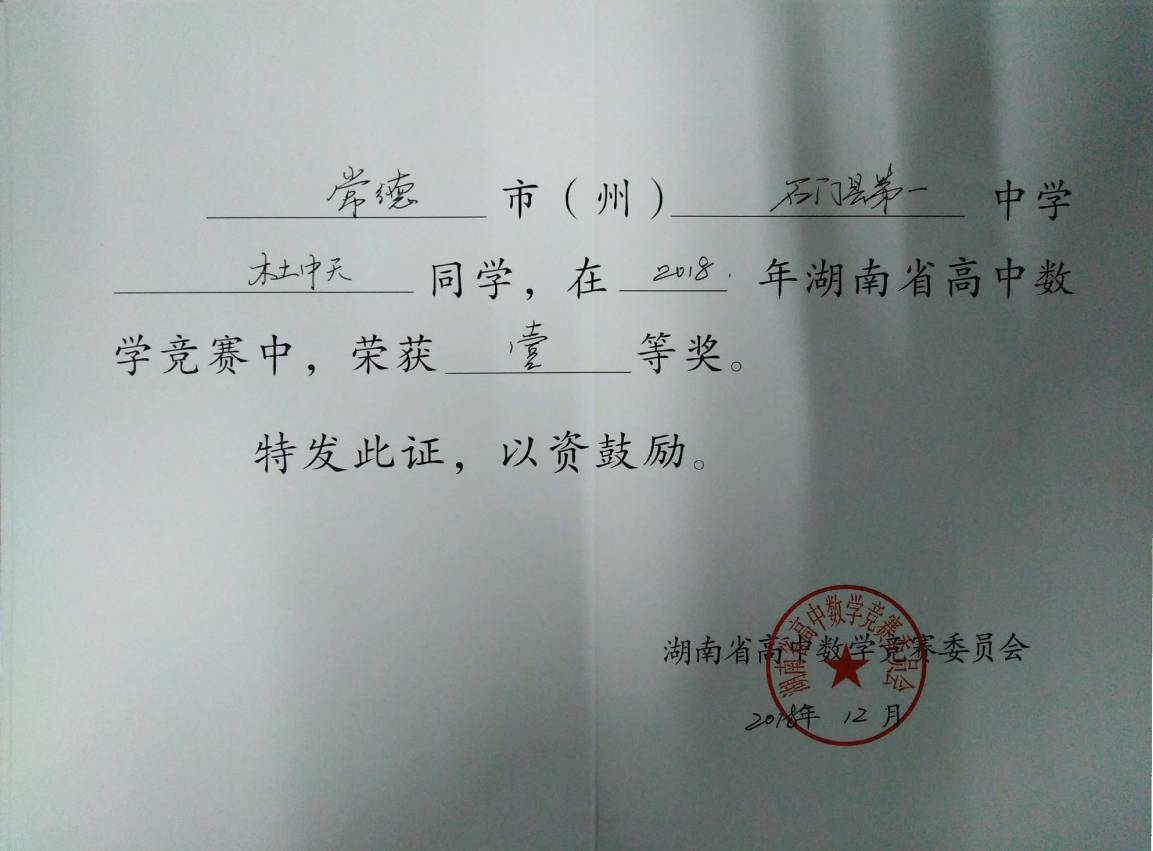 常德 市（州）石门县第一 中学
杜中天 同学，在 2018. 年湖南省高中数
学竞赛中，荣获 壹 等奖。
特发此证，以资鼓励。
湖南省高中数学竞赛委员会
湖南省高中数学竞赛委员会
2018年 12 月